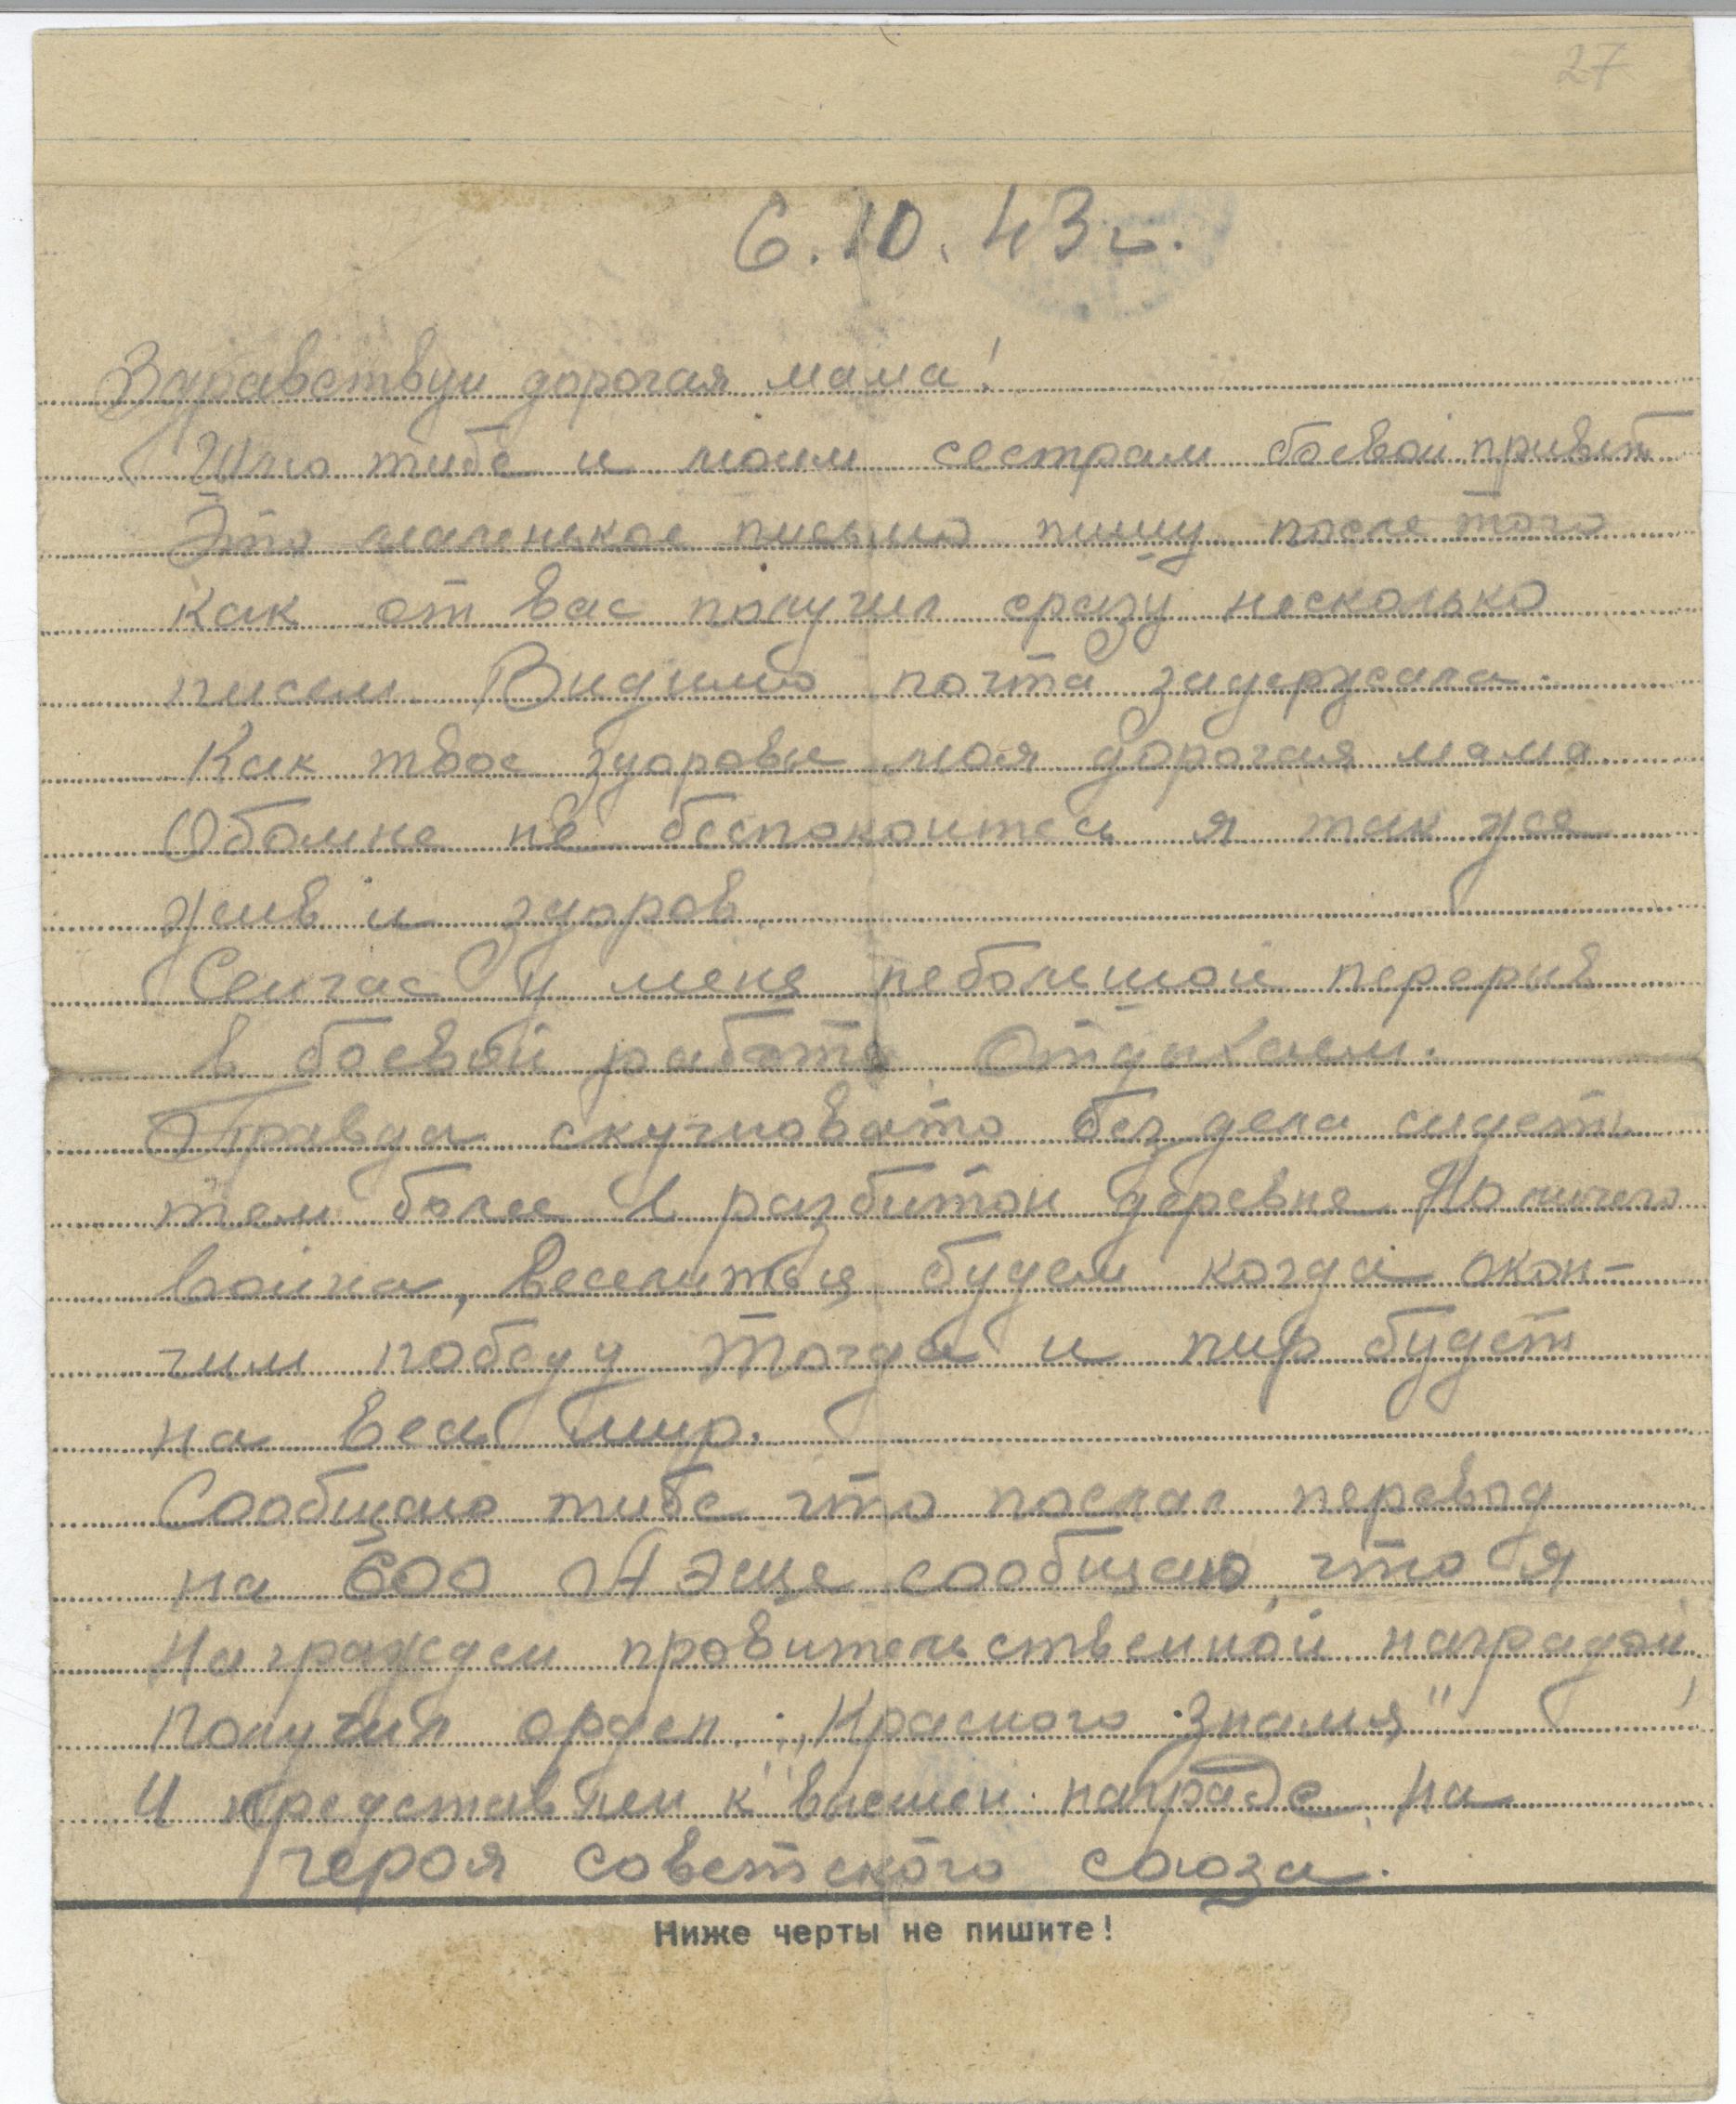 27
6.10.43 г.
Здравствуй дорогая мама!
Шлю тибе и моим сестрам боевой привет
Это маленькое письмо пишу после того
как от вас получил сразу несколько
писем. Видимо почта задержала.
Как твое здоровье моя дорогая мама
Обомне не беспокоитесь я так же
жив и здоров
Сейчас у меня небольшой перерыв
в боевой работе Отдыхаем.
Правда скучновато без дела сидеть
тем более в разбитой деревне. Но ничего
война, веселиться будем когда окон-
чим победу тогда и пир будет
на весь мир.
Сообщаю тибе что послал перевод
на 600 А эще сообщаю, что я
Награжден провительственной наградой,
Получил орден „Красного Знамя"
И представлен к высшей награде на
героя советского союза.
Ниже черты не пишите!